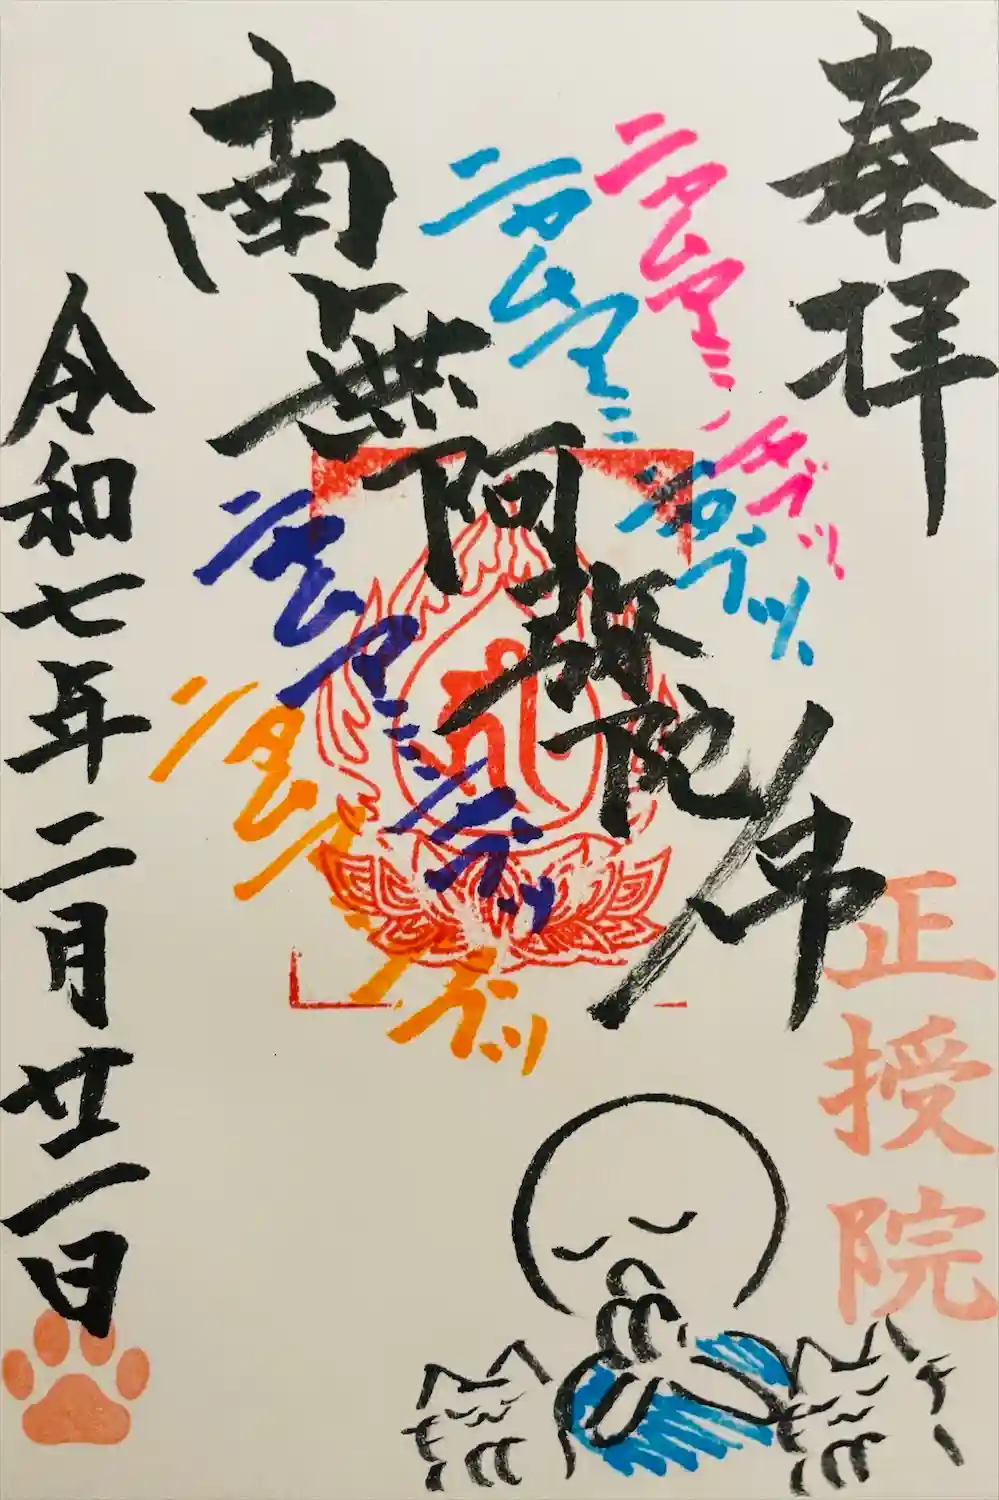 奉拝
正授院
南無阿弥陀佛
ニャムアミダブツ
ニャムアミダブツ
ニャムアミダブツ
ニャムアミダブツ
令和七年二月廿一日